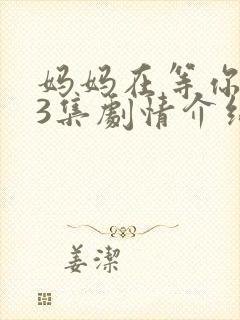 妈妈在等你
3集劇情介
姜潔